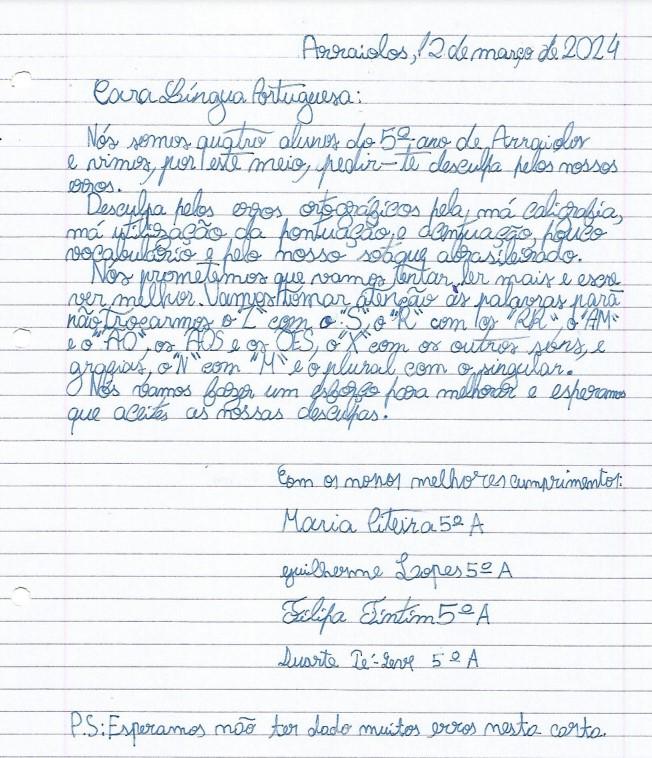 Arraiolos, 12 de março de 2024
Cara Língua Portuguesa:
Nós somos quatro alunos do 5º ano de Arraiolos
e vimos, por este meio, pedir-te desculpa pelos nossos
erros.
Desculpa pelos erros ortográficos pela má caligrafia,
má utilização da pontuação e acentuação, pouco
vocabulário e pelo nosso sotaque abrasileirado.
Nós prometemos que vamos tentar ler mais e escre
ver melhor. Vamos tomar atenção às palavras para
não trocarmos o "Z" com o "S", o "R" com os "RR", o "AM"
e o "ÃO", os ÃOS e os ÕES, o "X" com os outros sons, e
grafias, o "N" com "M" e o plural com o singular.
Nós vamos fazer um esforço para melhorar e esperamos
que aceites as nossas desculpas.
Com os nossos melhores cumprimentos:
Maria Liteira 5º A
Guilherme Lopes 5º A
Filipa Tintim 5º A
Duarte 5º A
P.S: Esperamos não ter dado muitos erros nesta carta.